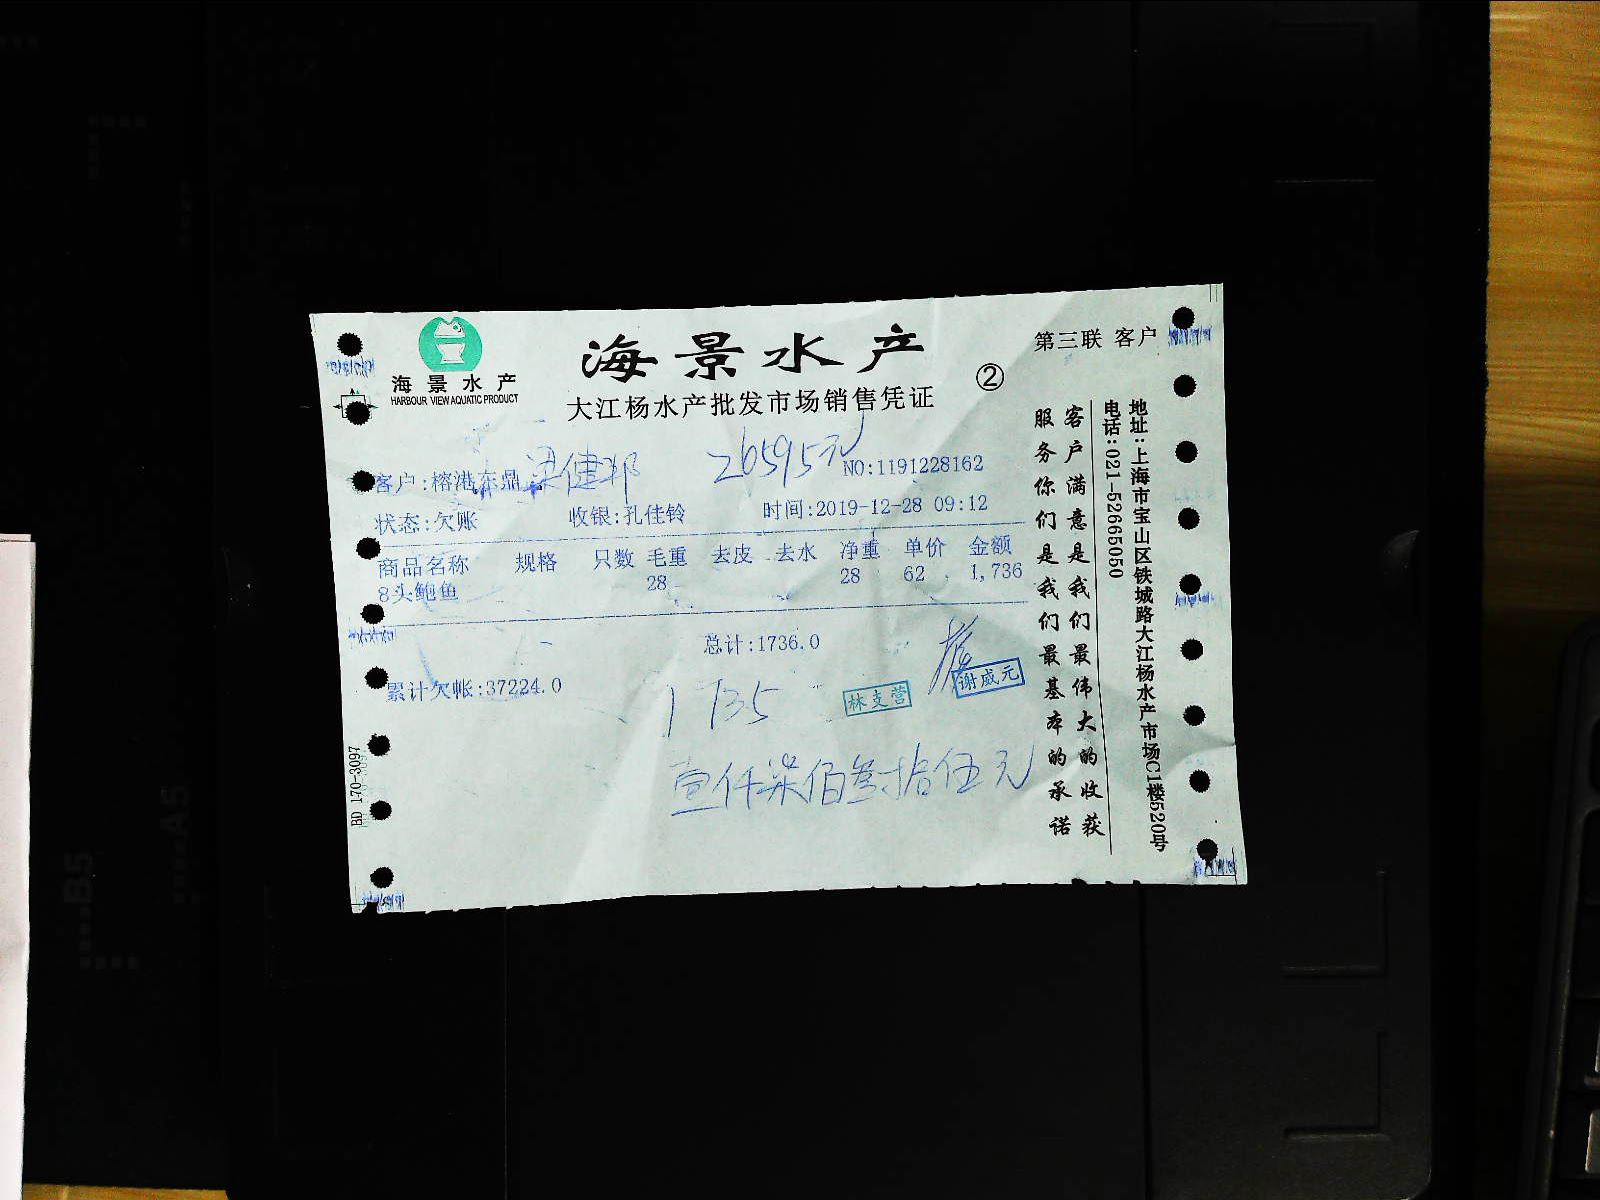 海景水产
HARBOUR VIEW AQUATIC PRODUCT
海景水产
大江杨水产批发市场销售凭证
②
第三联 客户
客户:榕港东鼎 梁健邦
26595元
NO:1191228162
状态:欠账 收银:孔佳铃 时间:2019-12-28 09:12
商品名称 规格 只数 毛重 去皮 去水 净重 单价 金额
8头鲍鱼 28 28 62 1,736
总计:1736.0
累计欠帐:37224.0
1735
林支营
谢威元
壹仟柒佰叁拾伍元
客户满意是我们最伟大的收获
服务你们是我们最基本的承诺
地址:上海市宝山区铁城路大江杨水产市场C1楼520号
电话:021-52665050
BD 170-3097
B5
A5